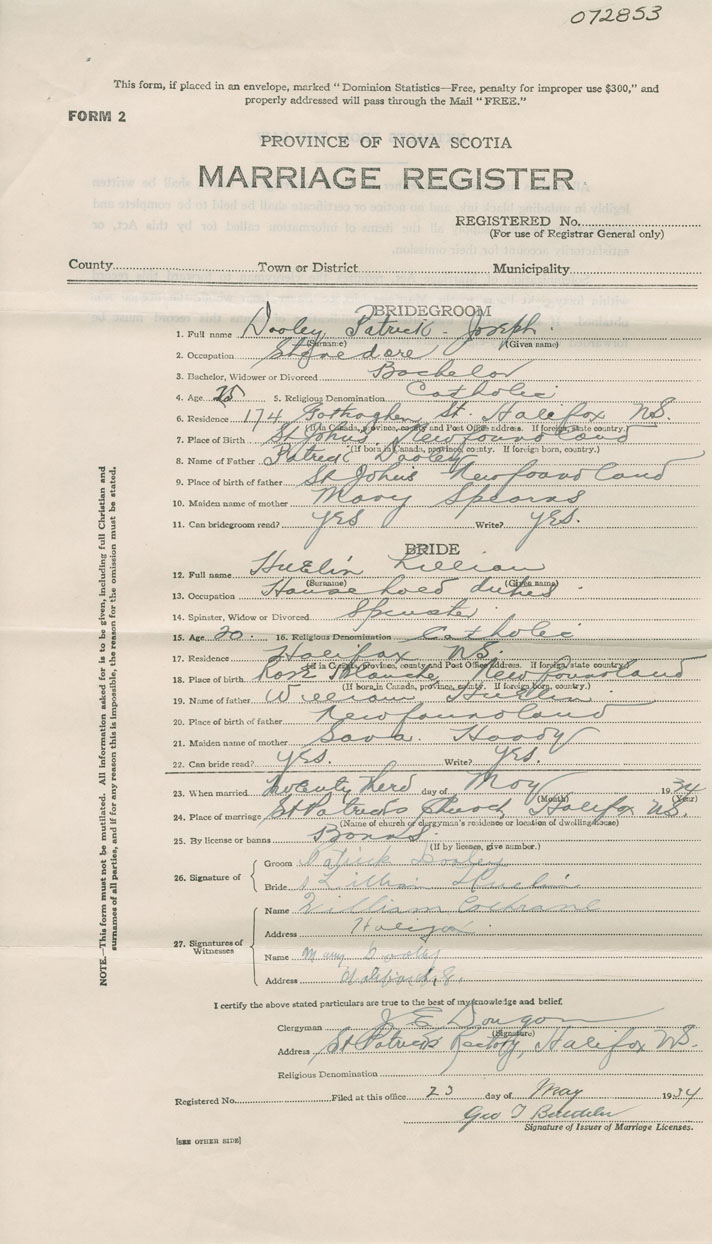 072853
This form, if placed in an envelope, marked "Dominion Statistics—Free, penalty for improper use $300," and
properly addressed will pass through the Mail "FREE."
FORM 2
PROVINCE OF NOVA SCOTIA
MARRIAGE REGISTER
REGISTERED No.
(For use of Registrar General only)
County Town or District Municipality
BRIDEGROOM
1. Full name Dooley Patrick Joseph
(Surname) (Given name)
2. Occupation
3. Bachelor, Widower or Divorced Bachelor
4. Age 25 5. Religious Denomination Catholic
6. Residence 174 St. Halifax N.S.
(If in Canada, province, county and Post Office address. If foreign state country.)
7. Place of Birth St Johns Newfoundland
(If born in Canada, province county. If foreign born, country.)
8. Name of Father Patrick Dooley
9. Place of birth of father St John's Newfoundland
10. Maiden name of mother Mary Spearns
11. Can bridegroom read? yes Write? yes.
BRIDE
12. Full name Huelin Lillian
(Surname) (Given name)
13. Occupation House hold duties
14. Spinster, Widow or Divorced Spinster
15. Age 20 16. Religious Denomination Catholic
17. Residence Halifax N.S.
(If in Canada, province, county and Post Office address. If foreign state country.)
18. Place of birth Rose Blanche, Newfoundland
(If born in Canada, province, county. If foreign born, country.)
19. Name of father William Huelin
20. Place of birth of father Newfoundland
21. Maiden name of mother Sara
22. Can bride read? yes. Write? yes.
23. When married twenty day of May 1934
(Month) (Year)
24. Place of marriage St Patricks Halifax N.S.
(Name of church or clergyman's residence or location of dwelling-house)
25. By license or banns Banns
(If by licence, give number.)
26. Signature of
Groom Patrick Dooley
Bride Lillian Huelin
27. Signatures of Witnesses
Name William Cochrane
Address Halifax
Name Mary Dooley
Address
I certify the above stated particulars are true to the best of my knowledge and belief.
Clergyman J E
(Signature)
Address St Patricks Rectory, Halifax N.S.
Religious Denomination
Registered No. Filed at this office 23 day of May 1934
Geo T
Signature of Issuer of Marriage Licenses.
[SEE OTHER SIDE]
NOTE.—This form must not be mutilated. All information asked for is to be given, including full Christian and
surnames of all parties, and if for any reason this is impossible, the reason for the omission must be stated.